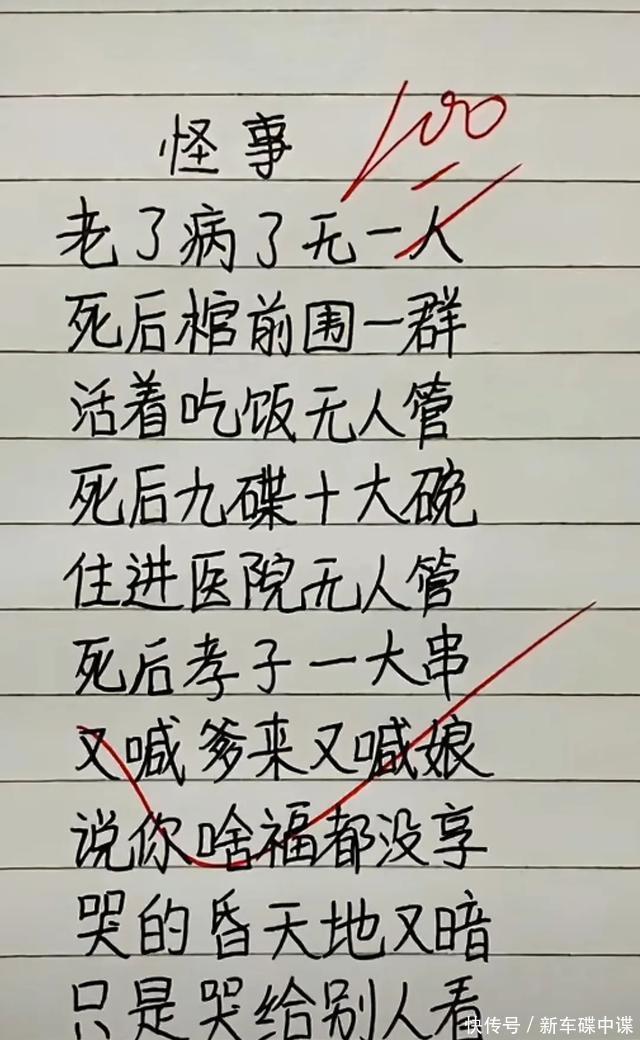 怪事
100
老了病了无一人
死后棺前围一群
活着吃饭无人管
死后九碟十大碗
住进医院无人管
死后孝子一大串
又喊爹来又喊娘
说你啥福都没享
哭的昏天地又暗
只是哭给别人看
快传号/新车碟中谍